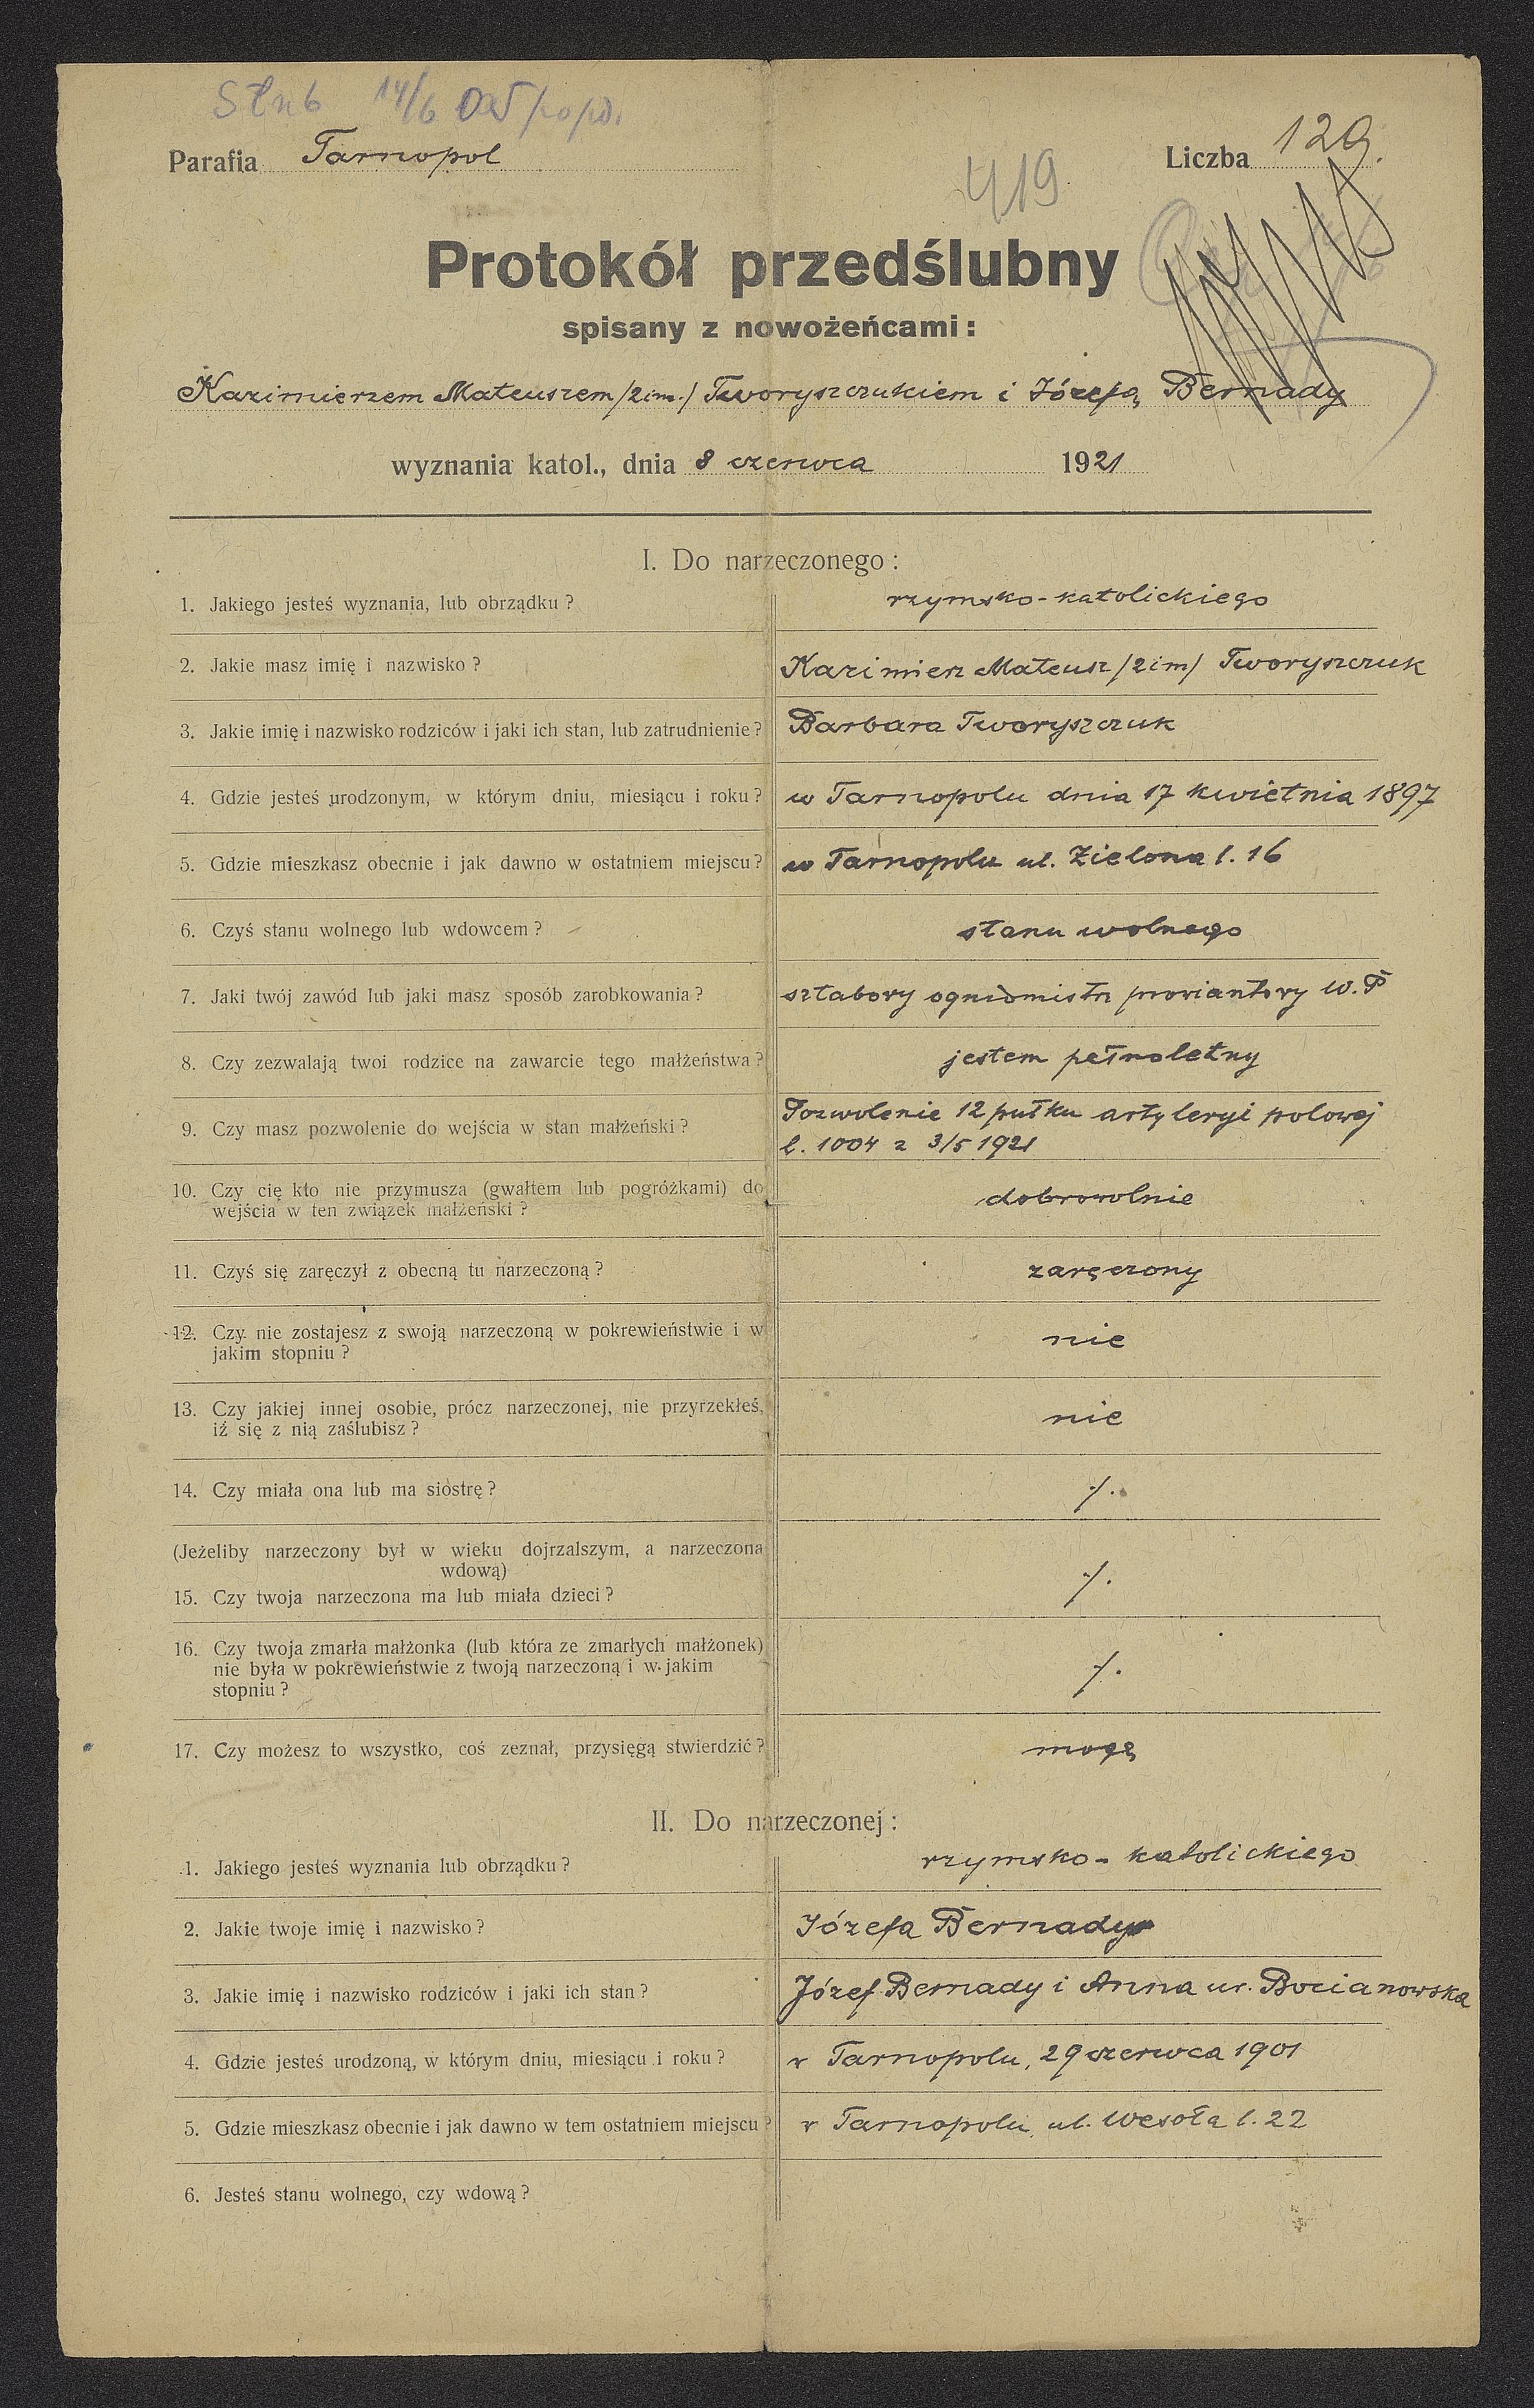 Ślub 14/6 o 5 popoł.
Parafia Tarnopol
Liczba 129.
419
Protokół przedślubny
spisany z nowożeńcami:
Kazimierzem Mateuszem /2 im./ Tworyszczukiem i Józefą Bernady
wyznania katol., dnia 8 czerwca 1921
I. Do narzeczonego:
1. Jakiego jesteś wyznania, lub obrządku? rzymsko-katolickiego
2. Jakie masz imię i nazwisko? Kazimierz Mateusz /2 im/ Tworyszczuk
3. Jakie imię i nazwisko rodziców i jaki ich stan, lub zatrudnienie? Barbara Tworyszczuk
4. Gdzie jesteś urodzonym, w którym dniu, miesiącu i roku? w Tarnopolu dnia 17 kwietnia 1897
5. Gdzie mieszkasz obecnie i jak dawno w ostatniem miejscu? w Tarnopolu ul. Zielona l. 16
6. Czyś stanu wolnego lub wdowcem? stanu wolnego
7. Jaki twój zawód lub jaki masz sposób zarobkowania? sztabowy ogniomistrz prowiantowy W.P
8. Czy zezwalają twoi rodzice na zawarcie tego małżeństwa? jestem pełnoletny
9. Czy masz pozwolenie do wejścia w stan małżeński? Pozwolenie 12 pułku artyleryi polowej
l. 1004 z 3/5 1921
10. Czy cię kto nie przymusza (gwałtem lub pogróżkami) do
wejścia w ten związek małżeński? dobrowolnie
11. Czyś się zaręczył z obecną tu narzeczoną? zaręczony
12. Czy nie zostajesz z swoją narzeczoną w pokrewieństwie i w
jakim stopniu? nie
13. Czy jakiej innej osobie, prócz narzeczonej, nie przyrzekłeś,
iż się z nią zaślubisz? nie
14. Czy miała ona lub ma siostrę? ./.
(Jeżeliby narzeczony był w wieku dojrzalszym, a narzeczona
wdową)
15. Czy twoja narzeczona ma lub miała dzieci? ./.
16. Czy twoja zmarła małżonka (lub która ze zmarłych małżonek)
nie była w pokrewieństwie z twoją narzeczoną i w jakim
stopniu? ./.
17. Czy możesz to wszystko, coś zeznał, przysięgą stwierdzić? mogę
II. Do narzeczonej:
1. Jakiego jesteś wyznania lub obrządku? rzymsko-katolickiego
2. Jakie twoje imię i nazwisko? Józefa Bernady
3. Jakie imię i nazwisko rodziców i jaki ich stan? Józef Bernady i Anna ur. Bocianowska
4. Gdzie jesteś urodzoną, w którym dniu, miesiącu i roku? w Tarnopolu, 29 czerwca 1901
5. Gdzie mieszkasz obecnie i jak dawno w tem ostatniem miejscu? w Tarnopolu, ul. Wesoła l. 22
6. Jesteś stanu wolnego, czy wdową?